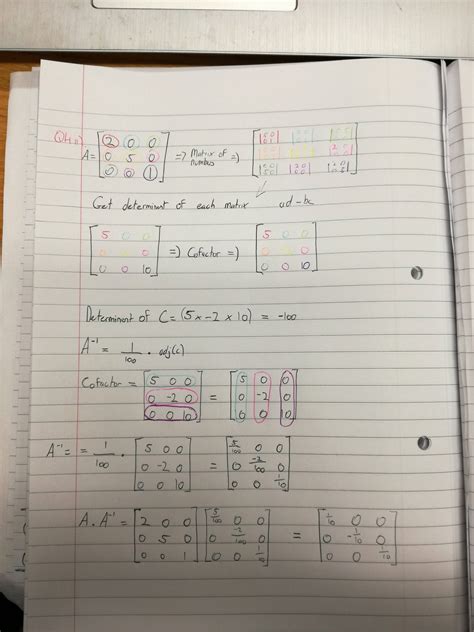 Q4 a)
A = [2 0 0; 0 5 0; 0 0 1] => Matrix of =>
Get determinant of each matrix ad - bc
[5 0 0; 0 0; 0 0 10] => Cofactor => [5 0 0; 0 0; 0 0 10]
Determinant of C = (5 x -2 x 10) = -100
A⁻¹ = 1/100 . adj(c)
Cofactor = [5 0 0; 0 -2 0; 0 0 10] = [5 0 0; 0 -2 0; 0 0 10]
A⁻¹ = = 1/100 . [5 0 0; 0 -2 0; 0 0 10] = [5/100 0 0; 0 -2/100 0; 0 0 1/10]
A . A⁻¹ = [2 0 0; 0 5 0; 0 0 1] [5/100 0 0; 0 -2/100 0; 0 0 1/10] = [1/10 0 0; 0 -1/10 0; 0 0 1/10]